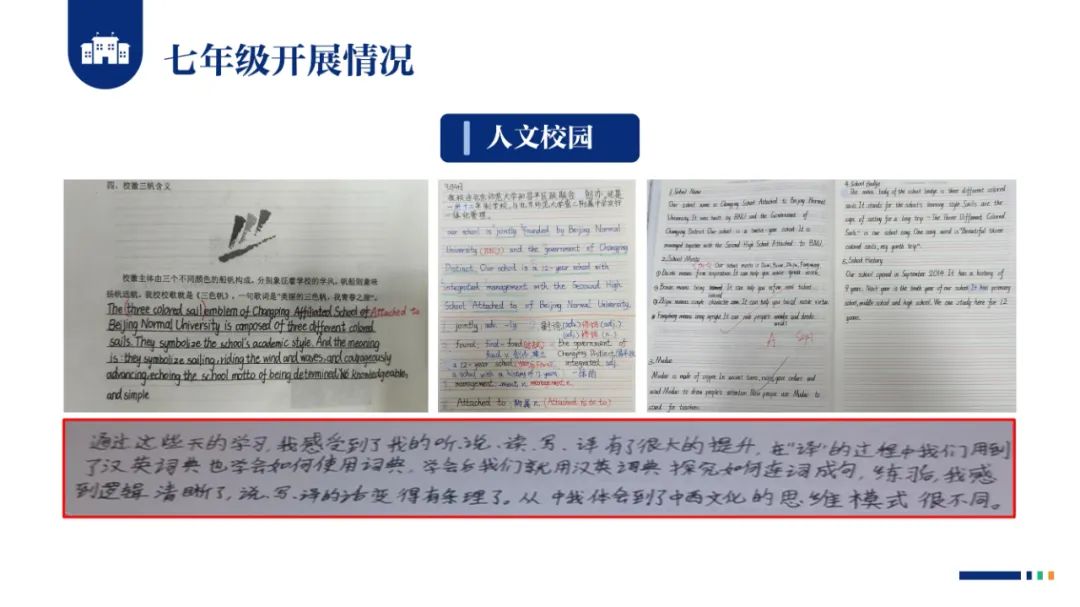 七年级开展情况
人文校园
四、校徽三帆含义
校徽主体由三个不同颜色的船帆构成，分别象征着学校的学风，帆船则象征
扬帆远航。我校校歌就是《三色帆》，一句歌词是"美丽的三色帆，我青春之旅"。
The three colored sail emblem of Changping Affiliated School of Attached to
Beijing Normal University is composed of three different colored
sails. They symbolize the school's academic style. And the meaning
is: they symbolize sailing, riding the wind and waves, and courageously
advancing, echoing the school motto of being determined, knowledgeable,
and simple
our school is jointly founded by Beijing Normal
University (BNU) and the government of Changping
District. Our school is a 12-year school with
integrated management with the Second High
School Attached to of Beijing Normal University.
jointly: adv. -ly
a 12-year school
integrated adj.
management -ment n. management n.
Attached to 附属 n. (Attached is to to)
1. School Name
Our school name is Changping School Attached to Beijing Normal
University. It was built by BNU and the Government of
Changping District. Our school is a twelve-year school. It is
managed together with the Second High School Attached to BNU.
2. School Motto
3. Muduo
Muduo is made of copper. In ancient times,
and Muduo to draw people's attention. Now people use Muduo to
stand for teachers.
4. School Badge
The main body of the school badge is three different colored
sails. It stands for the school's learning style. Sails are the
sign of setting for a long trip. "The Three Different Colored
Sails" is our school song. One song word is "Beautiful three
colored sails, my youth trip".
5. School History
Our school opened in September 2014. It has a history of
9 years. Next year is the tenth year of our school. It has primary
school, middle school and high school. We can study here for 12
years.
通过这些天的学习，我感受到了我的听、说、读、写、译有了很大的提升，在"译"的过程中我们用到
了汉英词典也学会如何使用词典，学会后我们就用汉英词典探究如何连词成句，练习后，我感
到逻辑清晰了，说、写、译的话变得有条理了。从中我体会到了中西文化的思维模式很不同。